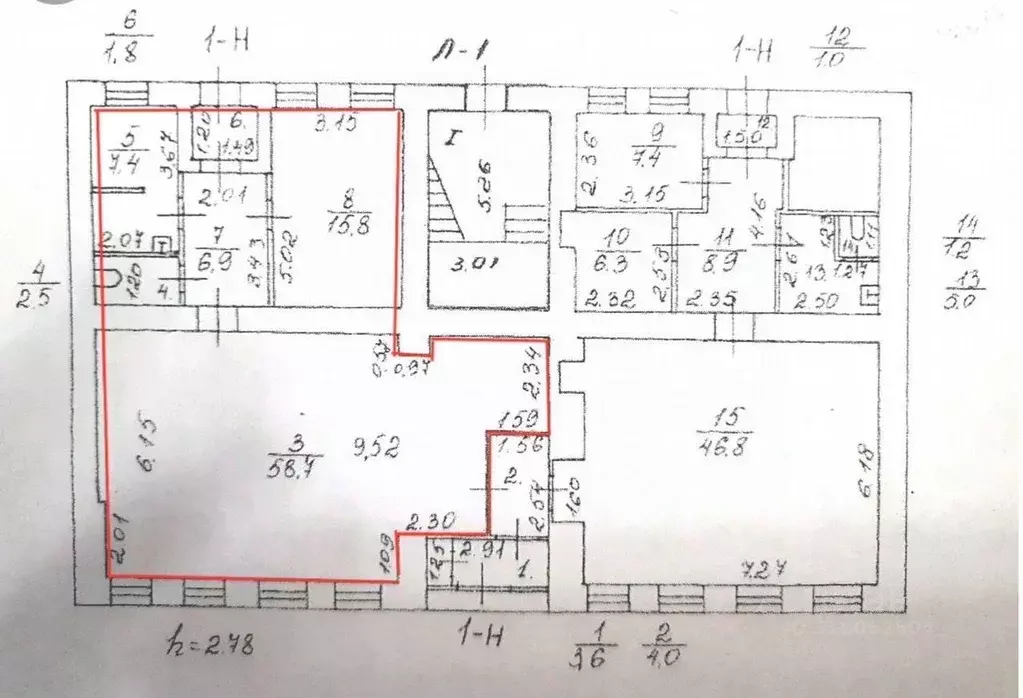 6
1.8
1-Н
Л-1
1-Н
12
1.0
5
7.4
3.67
1.20
6.
1.49
3.15
I
5.26
2.36
9
7.4
3.15
12
1.50
2.01
8
15.8
4.16
2.07
Т
7
6.9
3.43
5.02
3.01
10
6.3
2.53
11
8.9
2.61
1.23
14
1.11
13.
1.27
14
1.2
4
2.5
1.20
4.
2.32
2.35
2.50
Т
13
5.0
0.57
0.97
2.34
6.15
3
58.7
9,52
1.59
1.56
2.
2.54
1.60
15
46.8
6.18
2.01
1.09
2.30
1.25
2.91
1.
7.27
h=2.78
1-Н
1
3,6
2
4,0